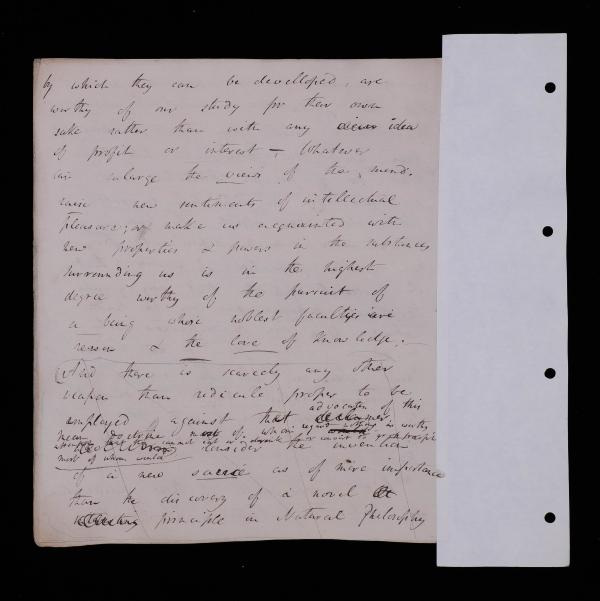 by which they can be developed, are
worthy of our study for their own
sake rather than with any idea
of profit or interest – Whatever
can enlarge the views of the mind.
raise new sentiments of intellectual
pleasure; or make us acquainted with
new properties & powers in the substances
surrounding us is in the highest
degree worthy of the pursuit of
a being whose noblest faculties are
reason & the love of knowledge. –
(And there is scarcely any other
weapon than redicule proper to be
advocates of this
employed against that
mean doctrine most of whom
most of whom would
consider the invention
of a new sauce as of more importance
than the discovery of a novel
interesting principle in Natural Philosophy